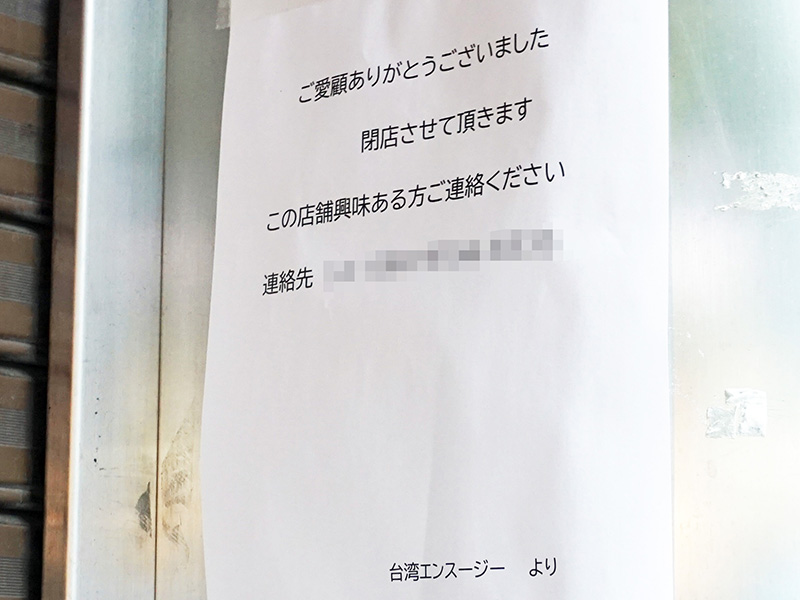 ご愛顧ありがとうございました
閉店させて頂きます
この店舗興味ある方ご連絡ください
連絡先
台湾エンスージー より